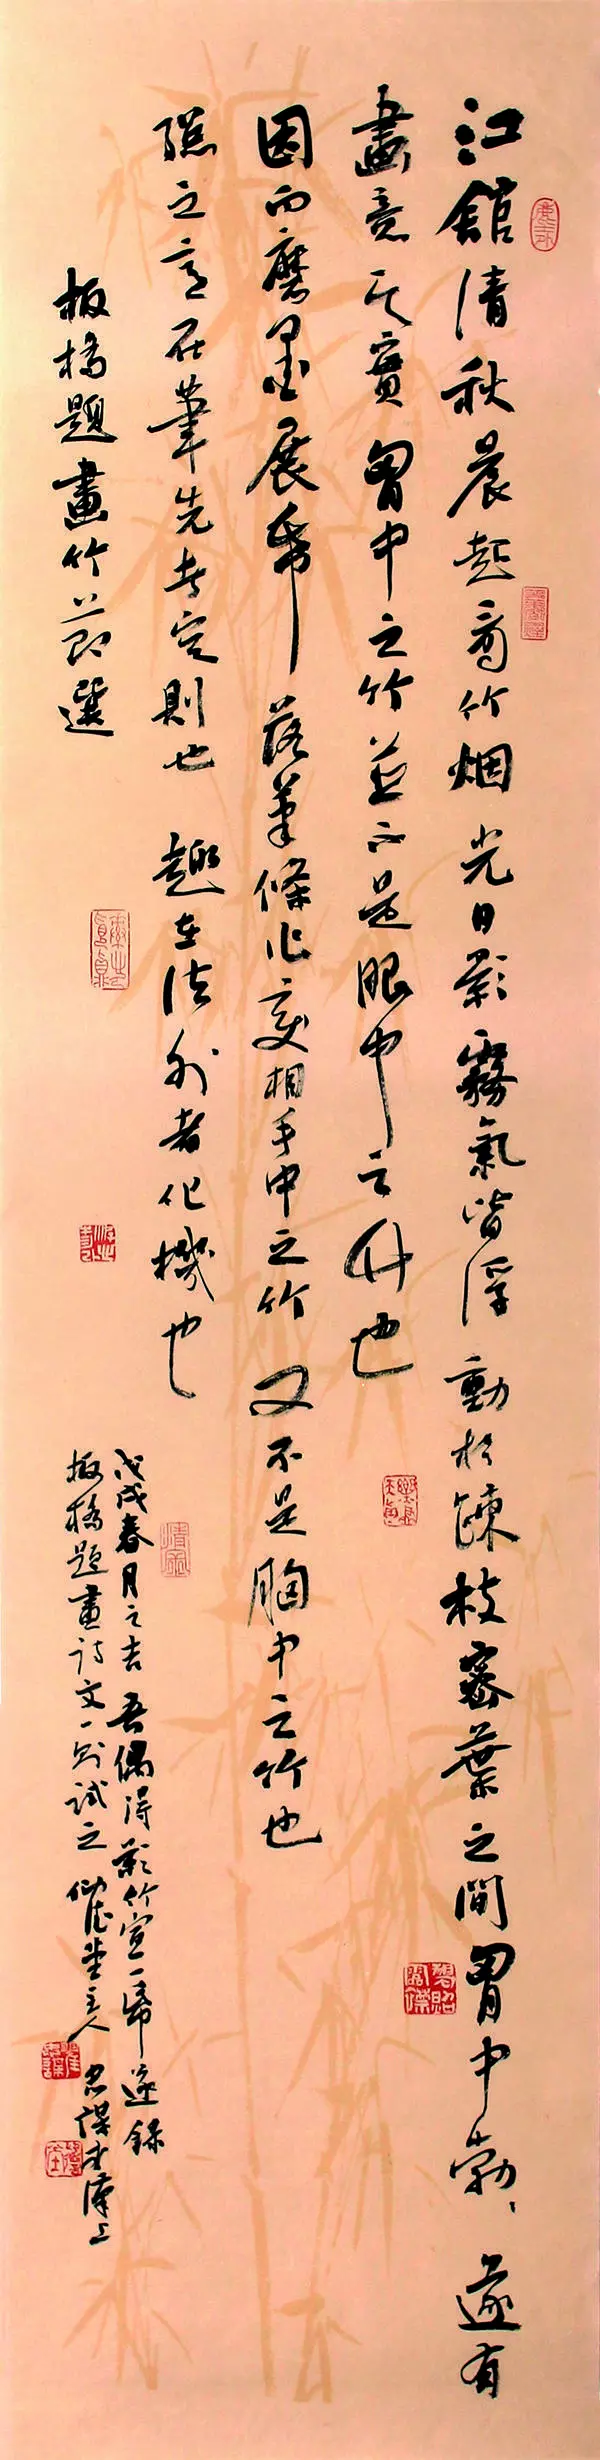 江館清秋晨起看竹烟光日影霧氣皆浮動於疎枝密葉之間胸中勃々遂有
畫意其實胷中之竹並不是眼中之竹也
因而磨墨展紙落筆倏作變相手中之竹又不是胸中之竹也
總之意在筆先者定則也趣在法外者化機也
板橋題畫竹節選
戊戌春月之吉吾偶得影竹宣一帋遂錄
板橋題畫詩文一則試之仙花堂主人忠謀於漢上